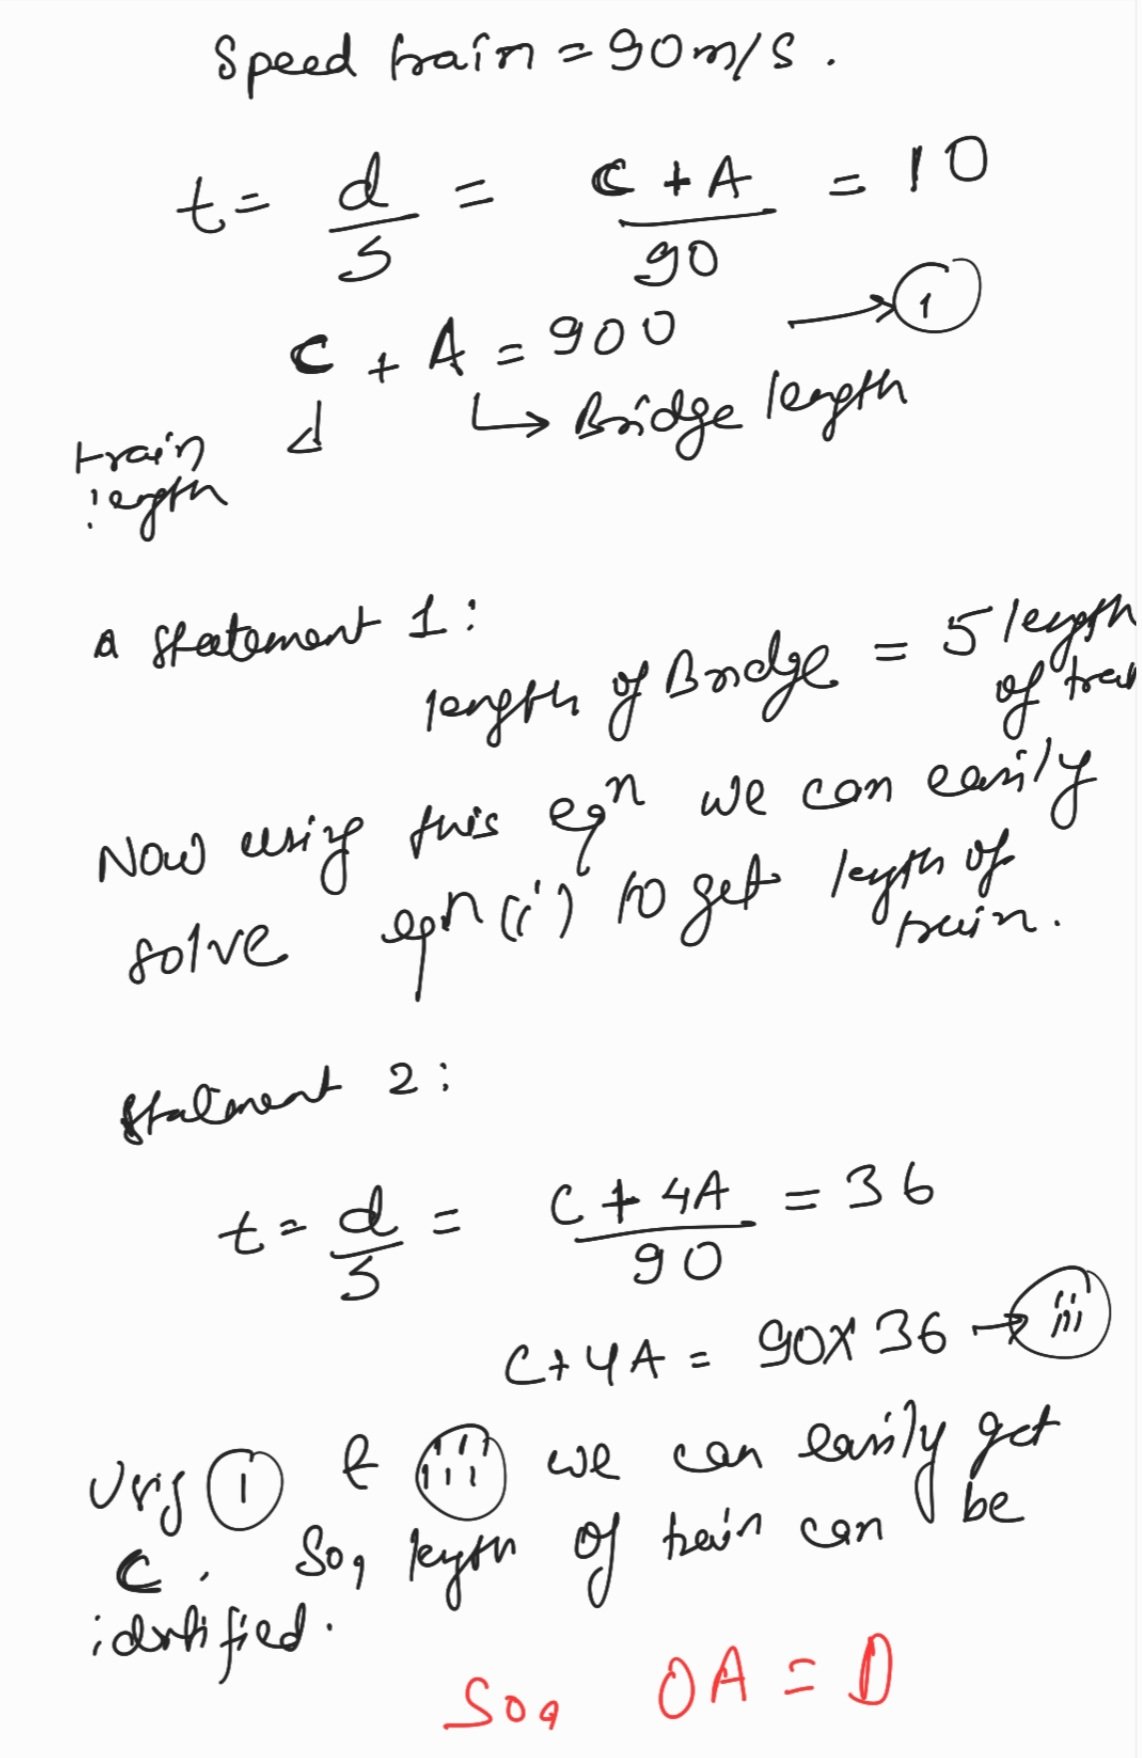 Speed train = 90 m/s.
t = d/s = C + A / 90 = 10
C + A = 900 → (1)
↳ Bridge length
train length
a statement 1:
length of Bridge = 5 length of trai
Now using this eqn we can easily
solve eqn (i) to get length of train.
Statment 2:
t = d/s = C + 4A / 90 = 36
C + 4A = 90 x 36 → (iii)
Using (1) & (iii) we can easily get
C. So, length of train can be
identified.
So, OA = D